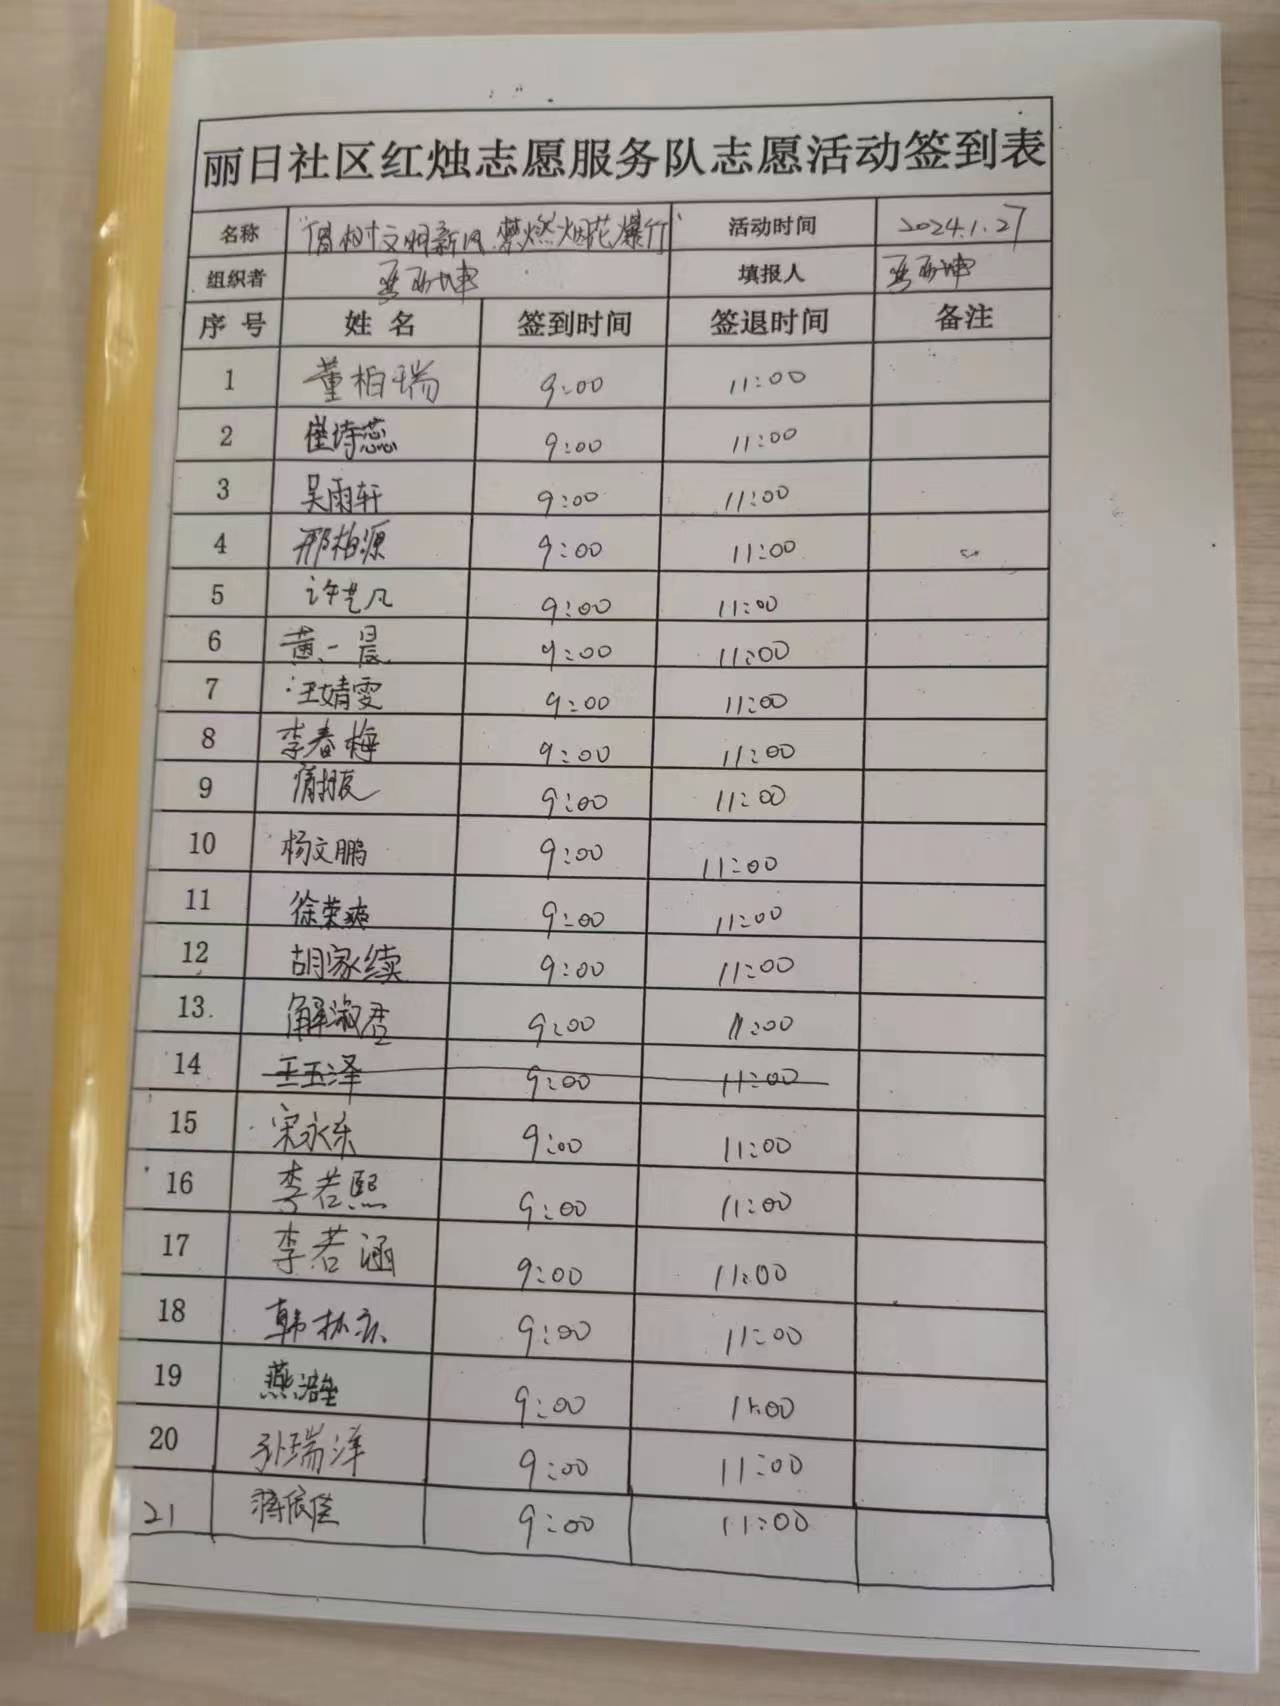 丽日社区红烛志愿服务队志愿活动签到表
名称 "倡树文明新风 禁燃烟花爆竹" 活动时间 2024.1.27
组织者 填报人
序号 姓名 签到时间 签退时间 备注
1 董柏瑞 9:00 11:00
2 崔诗蕊 9:00 11:00
3 吴雨轩 9:00 11:00
4 邢柏源 9:00 11:00
5 许艺凡 9:00 11:00
6 黄一晨 9:00 11:00
7 汪婧雯 9:00 11:00
8 李春梅 9:00 11:00
9 9:00 11:00
10 杨文鹏 9:00 11:00
11 徐荣爽 9:00 11:00
12 胡家续 9:00 11:00
13 解淑君 9:00 11:00
14 王玉泽 9:00 11:00
15 宋永乐 9:00 11:00
16 李若熙 9:00 11:00
17 李若涵 9:00 11:00
18 韩 9:00 11:00
19 燕 9:00 11:00
20 孙瑞泽 9:00 11:00
21 蒋依佳 9:00 11:00